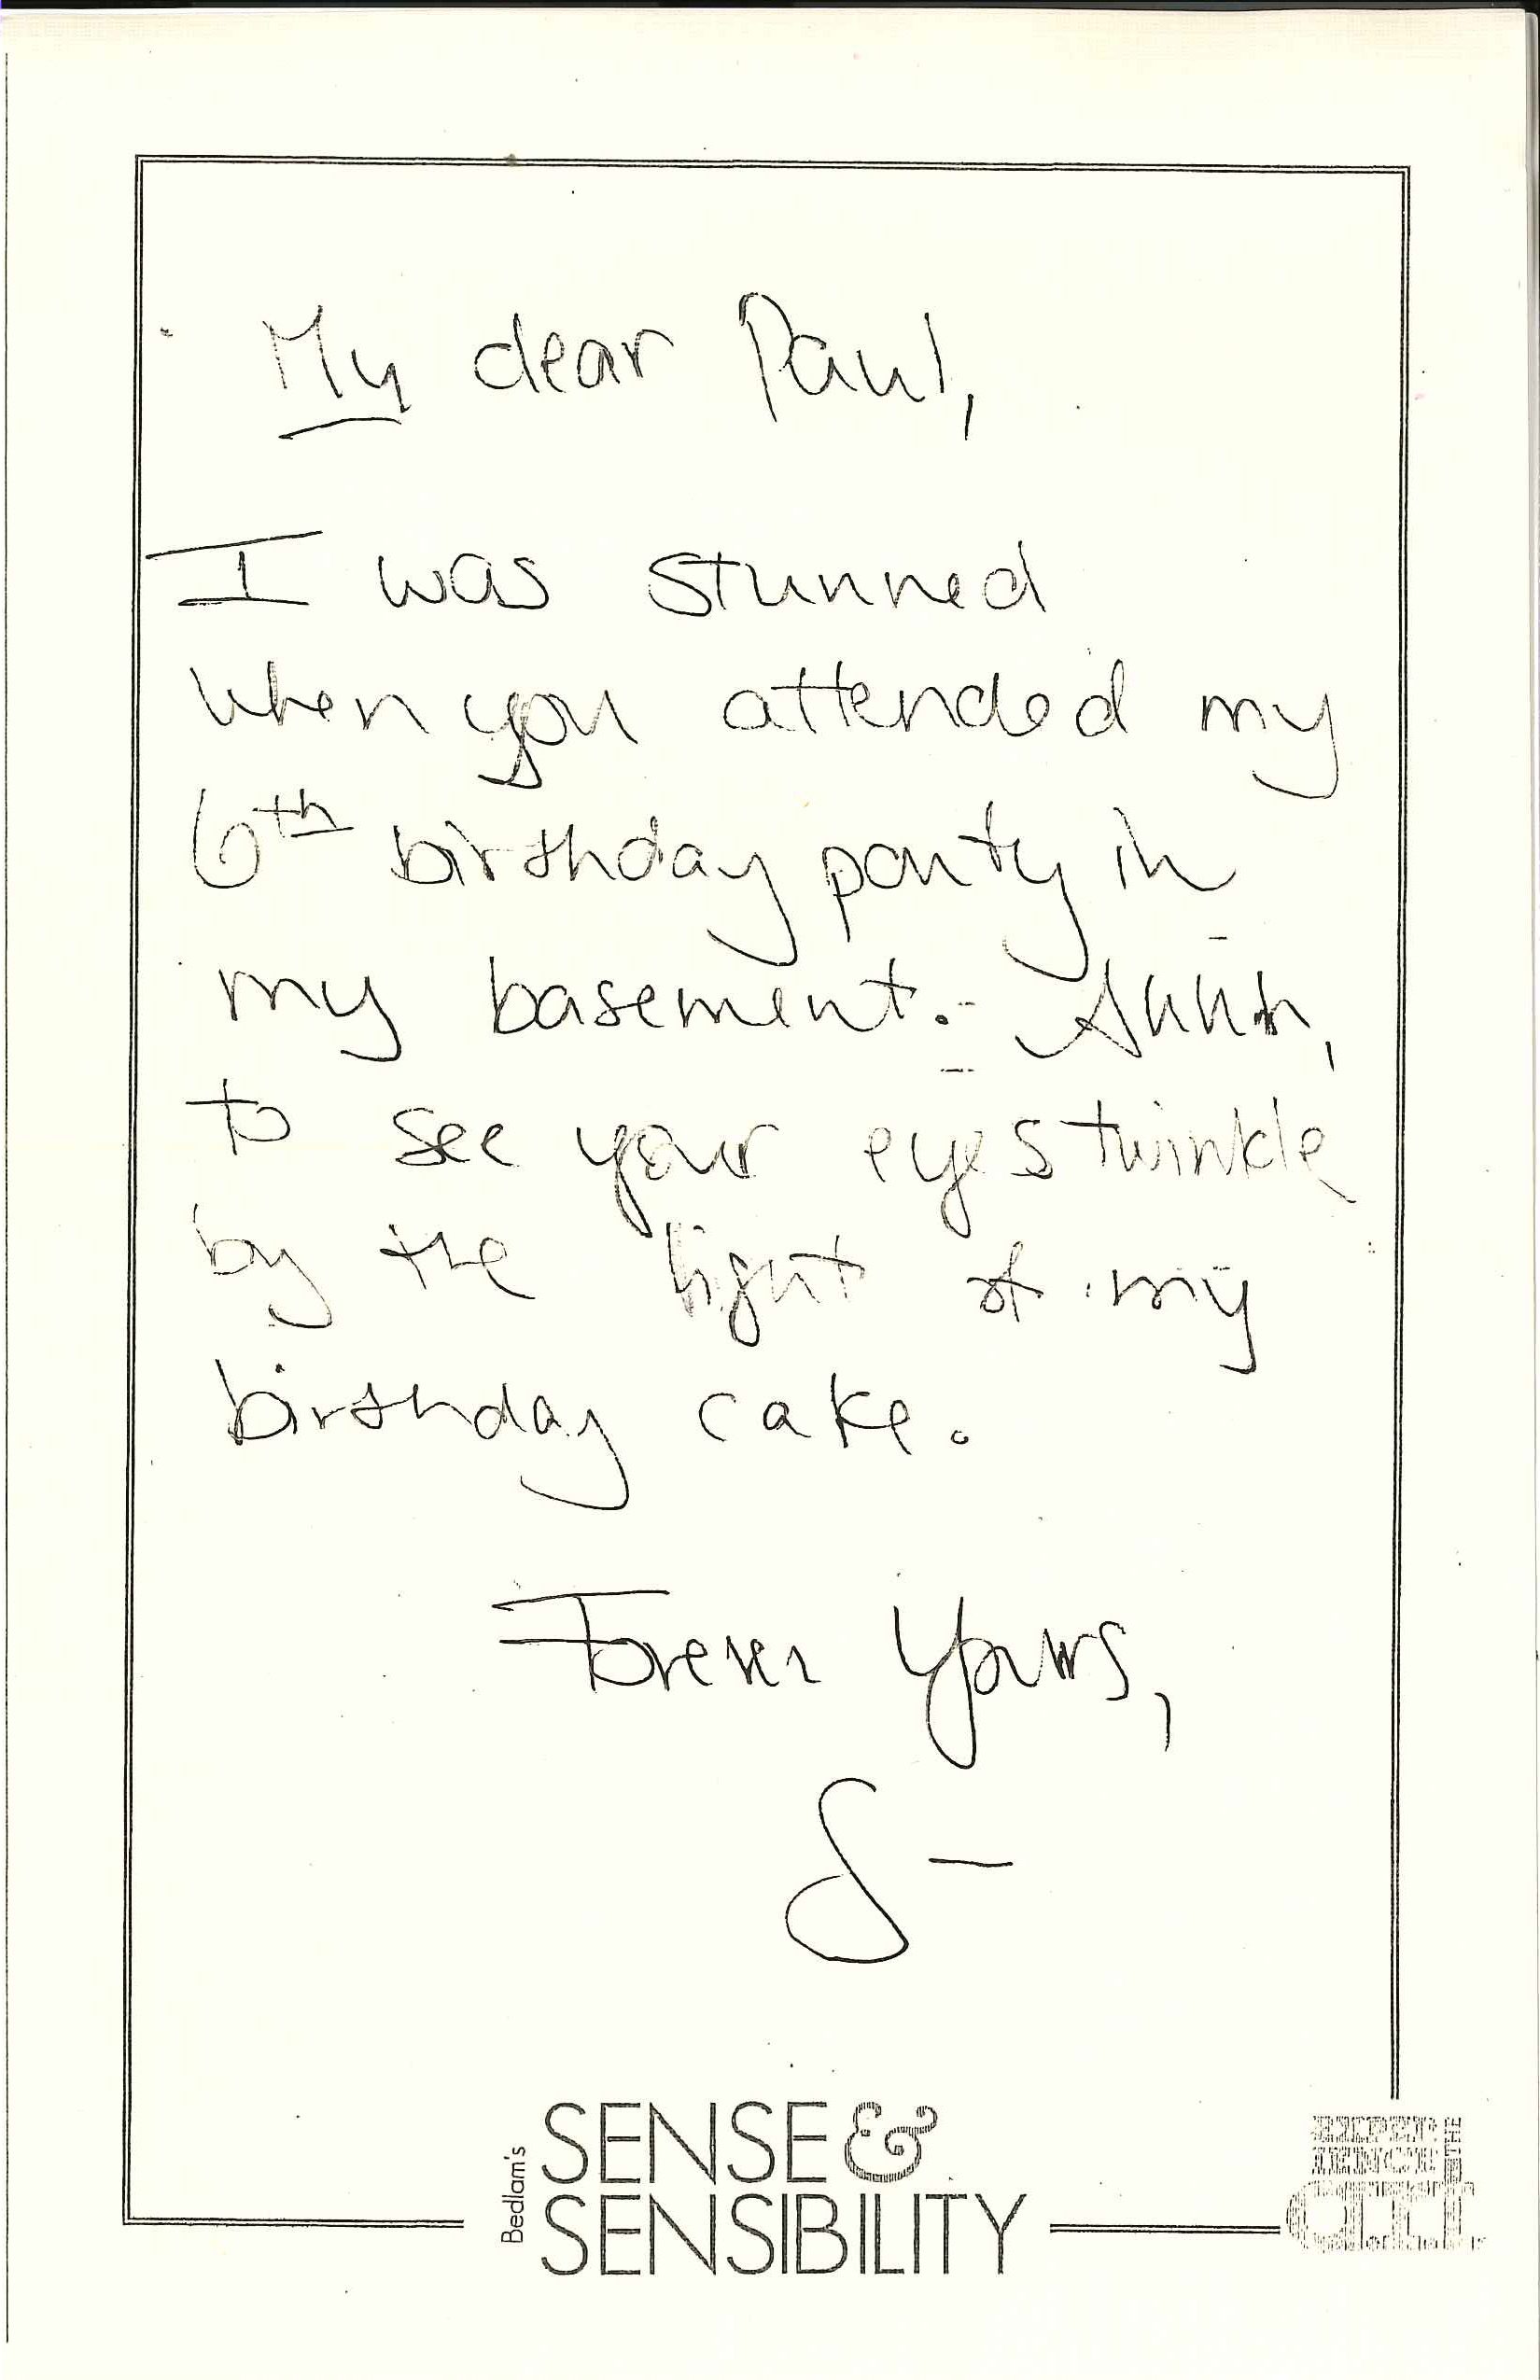 My dear Paul,
I was stunned
when you attended my
6th birthday party in
my basement.
to see your eyes twinkle
by the light of my
birthday cake.
Forever Yours,
S-
Bedlam's
SENSE &
SENSIBILITY
EXPER
IENCE THE